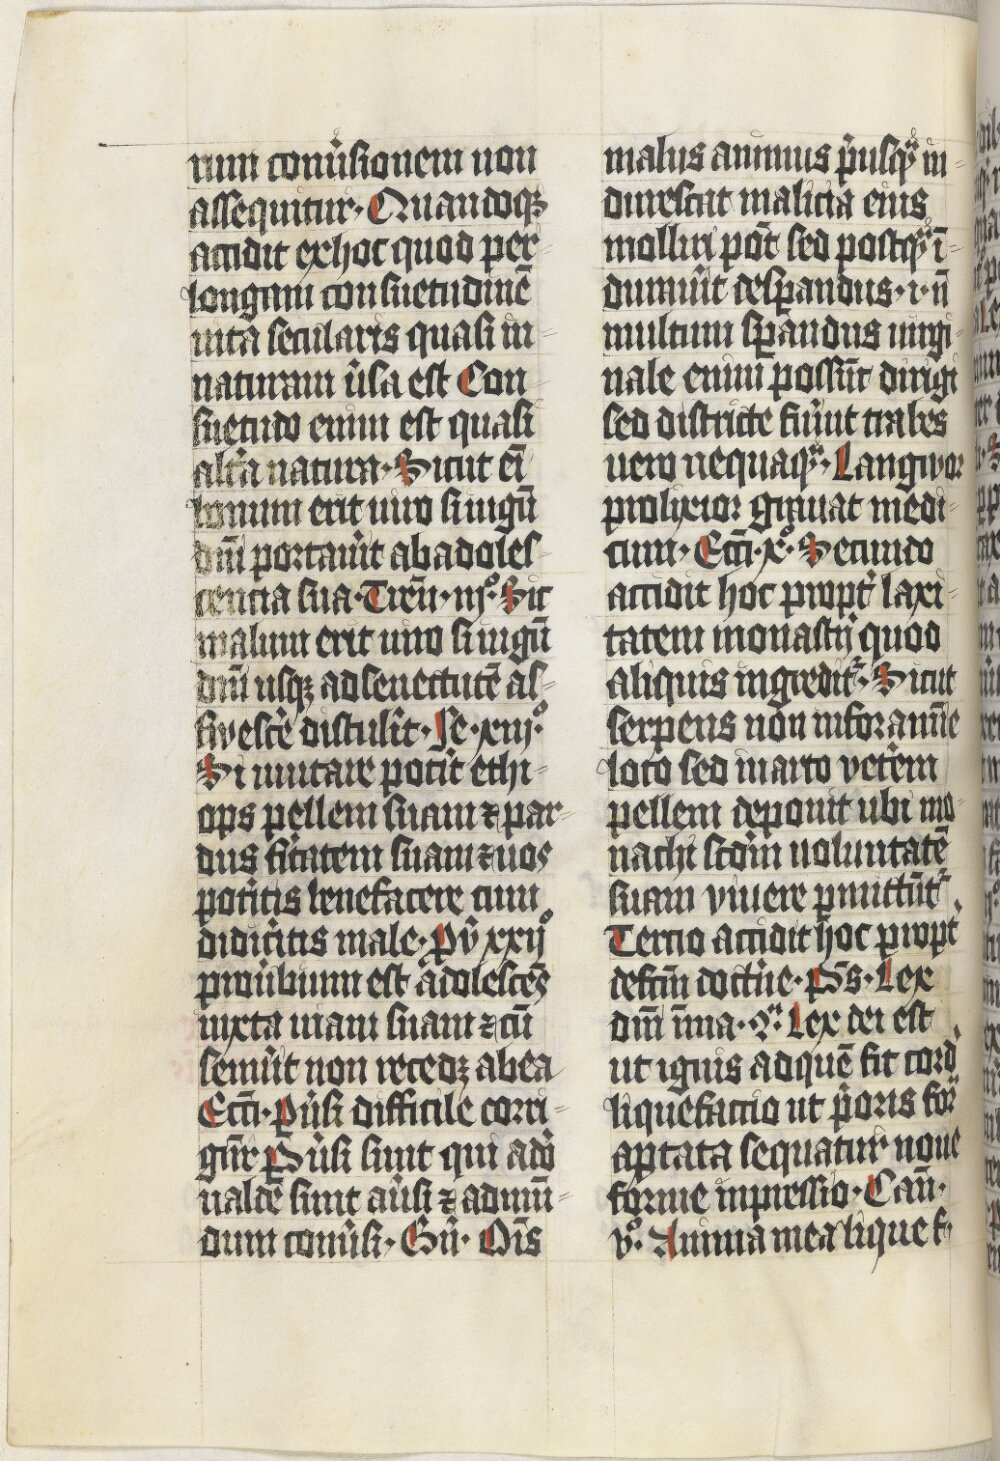 rum conu̾sionem non
assequitur· Quandoqꝫ
accidit exhoc quod per-
longam consuetudinē
uita secularis quasi in-
naturam u̾sa est Con-
suetudo enim est quasi
alt̾a natura· Sicut eī
bonum erit uiro si iugū
dn̄i portau̾it abadoles-
cencia sua· Tren̄· iijº· Sic
malum erit uiro si iugū
dn̄i usqꝫ adsenectutē as-
swesce̾ distulit̾· Je· xiijº·
Si mutare potit̾ ethi-
ops pellem suam ⁊ par-
dus
potitis̾ benefacere cum
didicitis̾ male· Pv̄ xxijº
prou̾bium est adolescēs
iuxta uiam suam ⁊ cū
senuit̾ non recedꝫ abea
Ecci̅· Pu̾si difficile corri-
gūr Pu̾si sunt qui ado̾
ualde sunt au̾si ⁊ admū-
dum conu̾si· Gu̅· Oīs
malus animus p̾usqᵃꝫ in-
durescat malicia eius
molliri pōt sed postqᵃꝫ ī-
durauit̾ desp̾andus· ī· n̄
multum sp̾andus uirgi-
nale enim possūt dirigi
sed districte fiu̾nt trabes
uero nequaqᵃꝫ· Langwor
prolixior gͣuat medi-
cum· Ecci̅· xº· Secundo
accidit hoc propt̾ laxi-
tatem monast̾ij quod
aliquis ingredit̾· Sicut
serpens non inforamīe
loco sed in arto vet̾em
pellem deponit ubi mo-
nachi scd̄m uoluntatē
suam viuere p̱mittūt̾
Tercio accidit hoc propt̾
defctm̄ doct̾ne· Ps̄· Lex
dn̄i īma· Lex dei est
ut ignis adquē fit cord̾
liquefactio ut p̾oris for̾
aptata sequatur noue
forme inpressio· Can̄·
vº· Anima mea liquef·